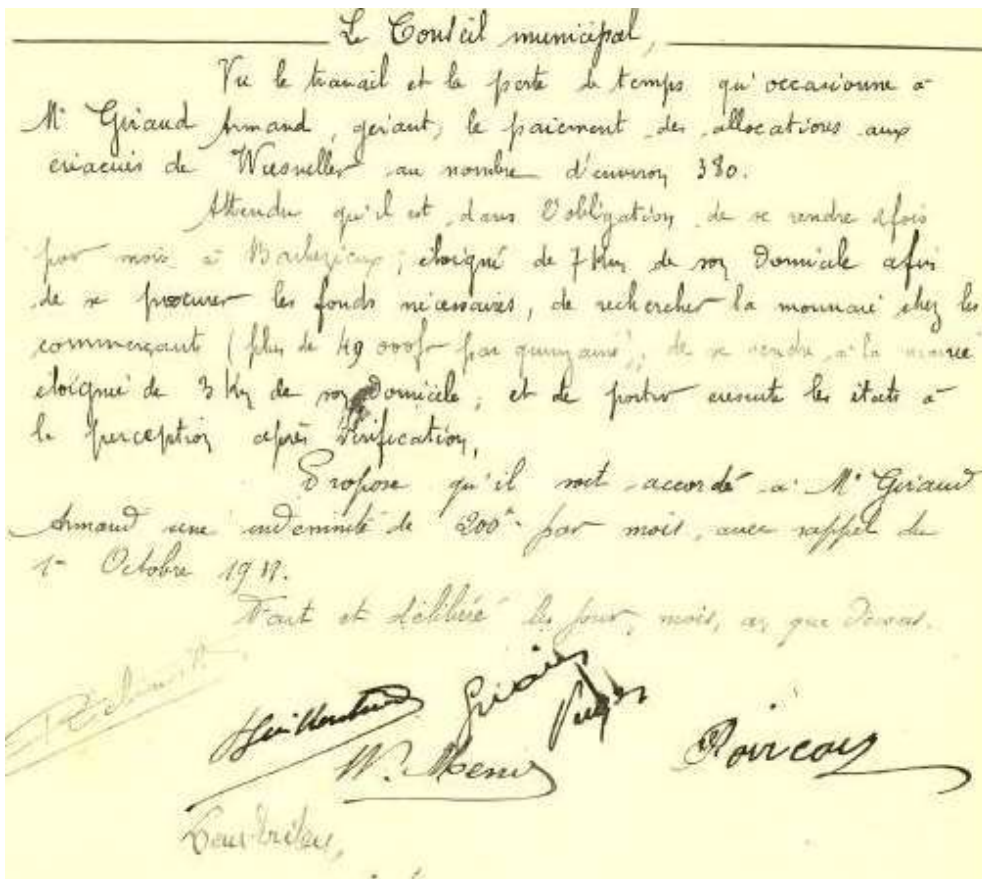 Le Conseil municipal,
Vu le travail et la perte de temps qu'occasionne à
Mr Giraud Armand, gérant, le paiement des allocations aux
évacués de Wiesviller au nombre d'environ 380.
Attendu qu'il est dans l'obligation de se rendre 2 fois
par mois à Barbezieux, éloigné de 7 Km de son domicile afin
de se procurer les fonds nécessaires, de rechercher la monnaie chez les
commerçants (plus de 49 000fr par quinzaine), de se rendre à la mairie
éloignée de 3 Km de son domicile, et de porter ensuite les états à
la perception après vérification,
Propose qu'il soit accordé à Mr Giraud
Armand une indemnité de 200fr par mois, avec rappel du
1er Octobre 19
Fait et délibéré les jour, mois, an, que dessus.